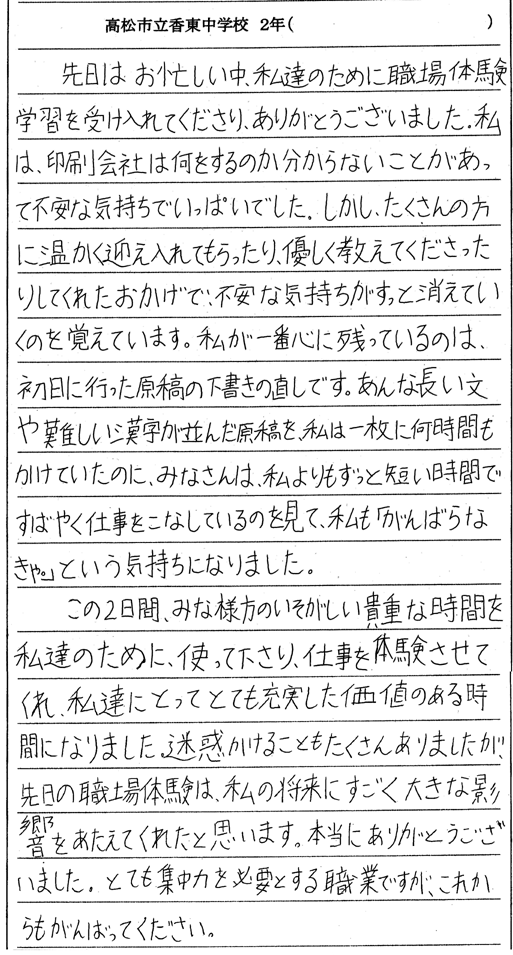 高松市立香東中学校 2年( )
先日は、お忙しい中、私達のために職場体験
学習を受け入れてくださり、ありがとうございました。私
は、印刷会社は何をするのか分からないことがあっ
て不安な気持ちでいっぱいでした。しかし、たくさんの方
に温かく迎え入れてもらったり、優しく教えてくださった
りしてくれたおかげで、不安な気持ちがすっと消えてい
くのを覚えています。私が一番心に残っているのは、
初日に行った原稿の下書きの直しです。あんな長い文
や難しい漢字が並んだ原稿を、私は一枚に何時間も
かけていたのに、みなさんは、私よりもずっと短い時間で
すばやく仕事をこなしているのを見て、私も「がんばらな
きゃ。」という気持ちになりました。
この2日間、みな様方のいそがしい貴重な時間を
私達のために、使って下さり、仕事を体験させて
くれ、私達にとってとても充実した価値のある時
間になりました。迷惑かけることもたくさんありましたが、
先日の職場体験は、私の将来にすごく大きな影
響をあたえてくれたと思います。本当にありがとうござ
いました。とても集中力を必要とする職業ですが、これか
らもがんばってください。